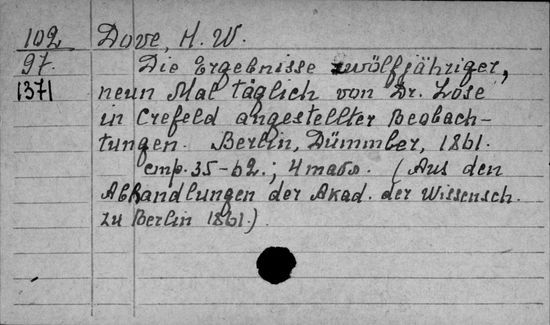 102 Dove, H. W.
97. Die Ergebnisse zwölfjähriger,
1371 neun Mal täglich von Dr. Lose
in Crefeld angestellter Beobach-
tungen. Berlin, Dümmber, 1861.
стр. 35-62.; 4 табл. (Aus den
Abhandlungen der Akad. der Wissensch.
zu Berlin 1861.)